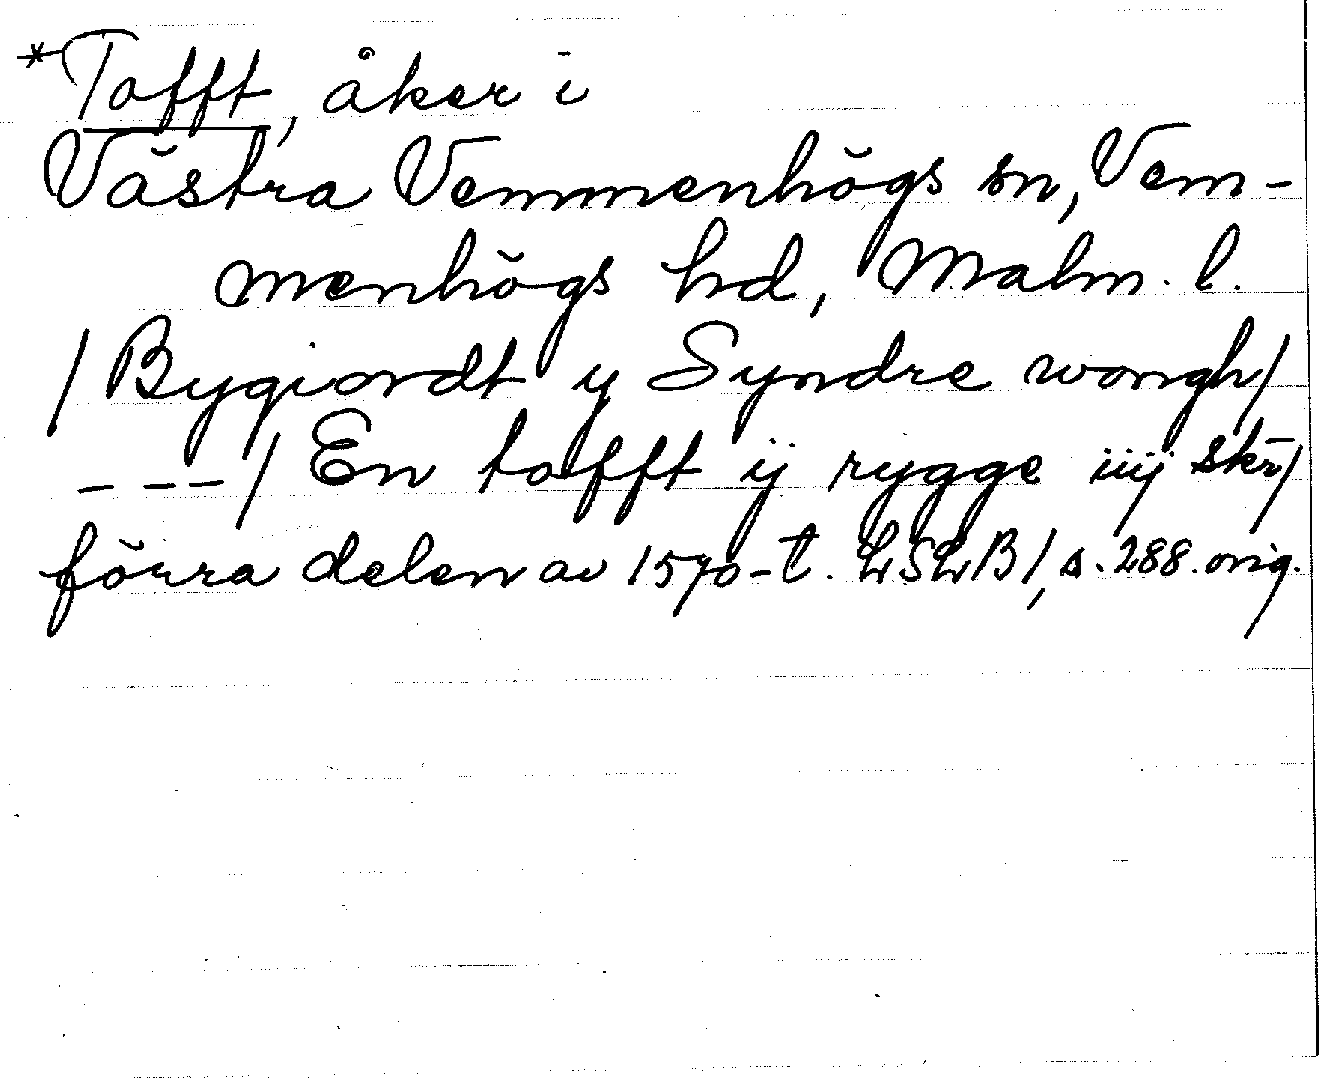 *Tofft, åker i
Västra Vemmenhögs sn, Vem-
menhögs hd, Malm. l.
/Bygiordt y Syndre wongh/
- - - / En tofft ij rygge iiij skr̄/
förra delen av 1570-t. LSLB/, s. 288. orig.